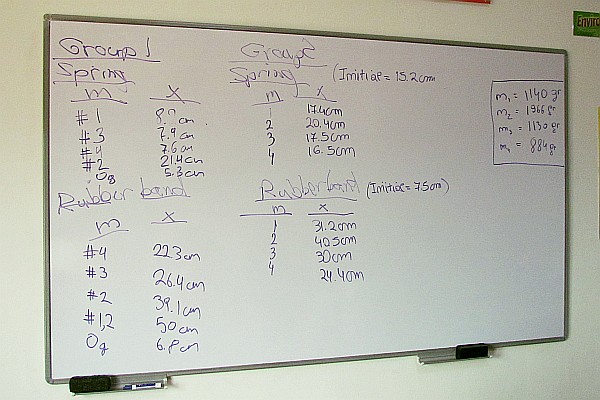 Group 1
Spring
m x
#1 8.7 cm
#3 7.9 cm
#4 7.6 cm
#2 21.4 cm
0g 5.3 cm
Rubber band
m x
#4 22.3 cm
#3 26.4 cm
#2 39.1 cm
#1,2 50 cm
0g 6.8 cm
Group 2
Spring (Initial = 15.2 cm
m x
1 17.4 cm
2 20.4 cm
3 17.5 cm
4 16.5 cm
Rubber band (Initial = 7.5 cm)
m x
1 31.2 cm
2 40.5 cm
3 30 cm
4 24.4 cm
m₁ = 1140 gr
m₂ = 1966 gr
m₃ = 1130 gr
m₄ = 884 gr
Enviro